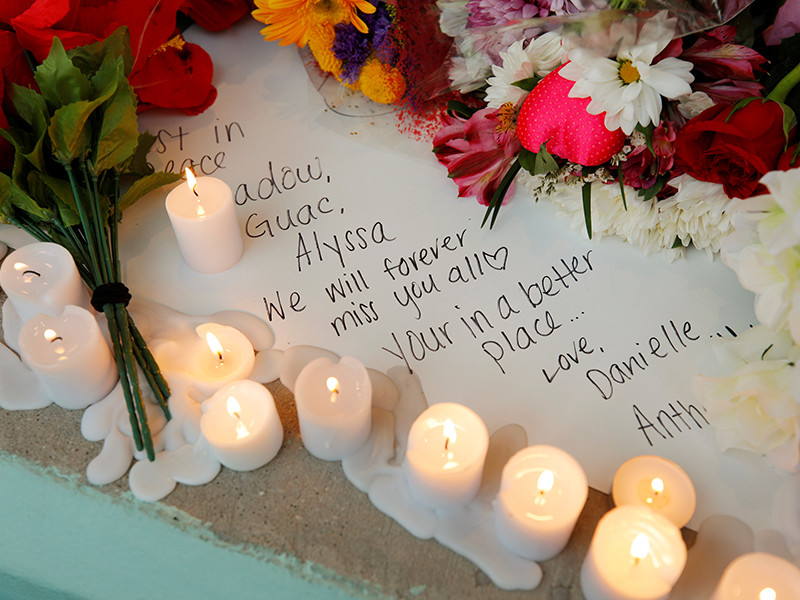 in
peace
Guac,
Alyssa
We will forever
miss you all♡
your in a better
place...
Love,
Danielle...